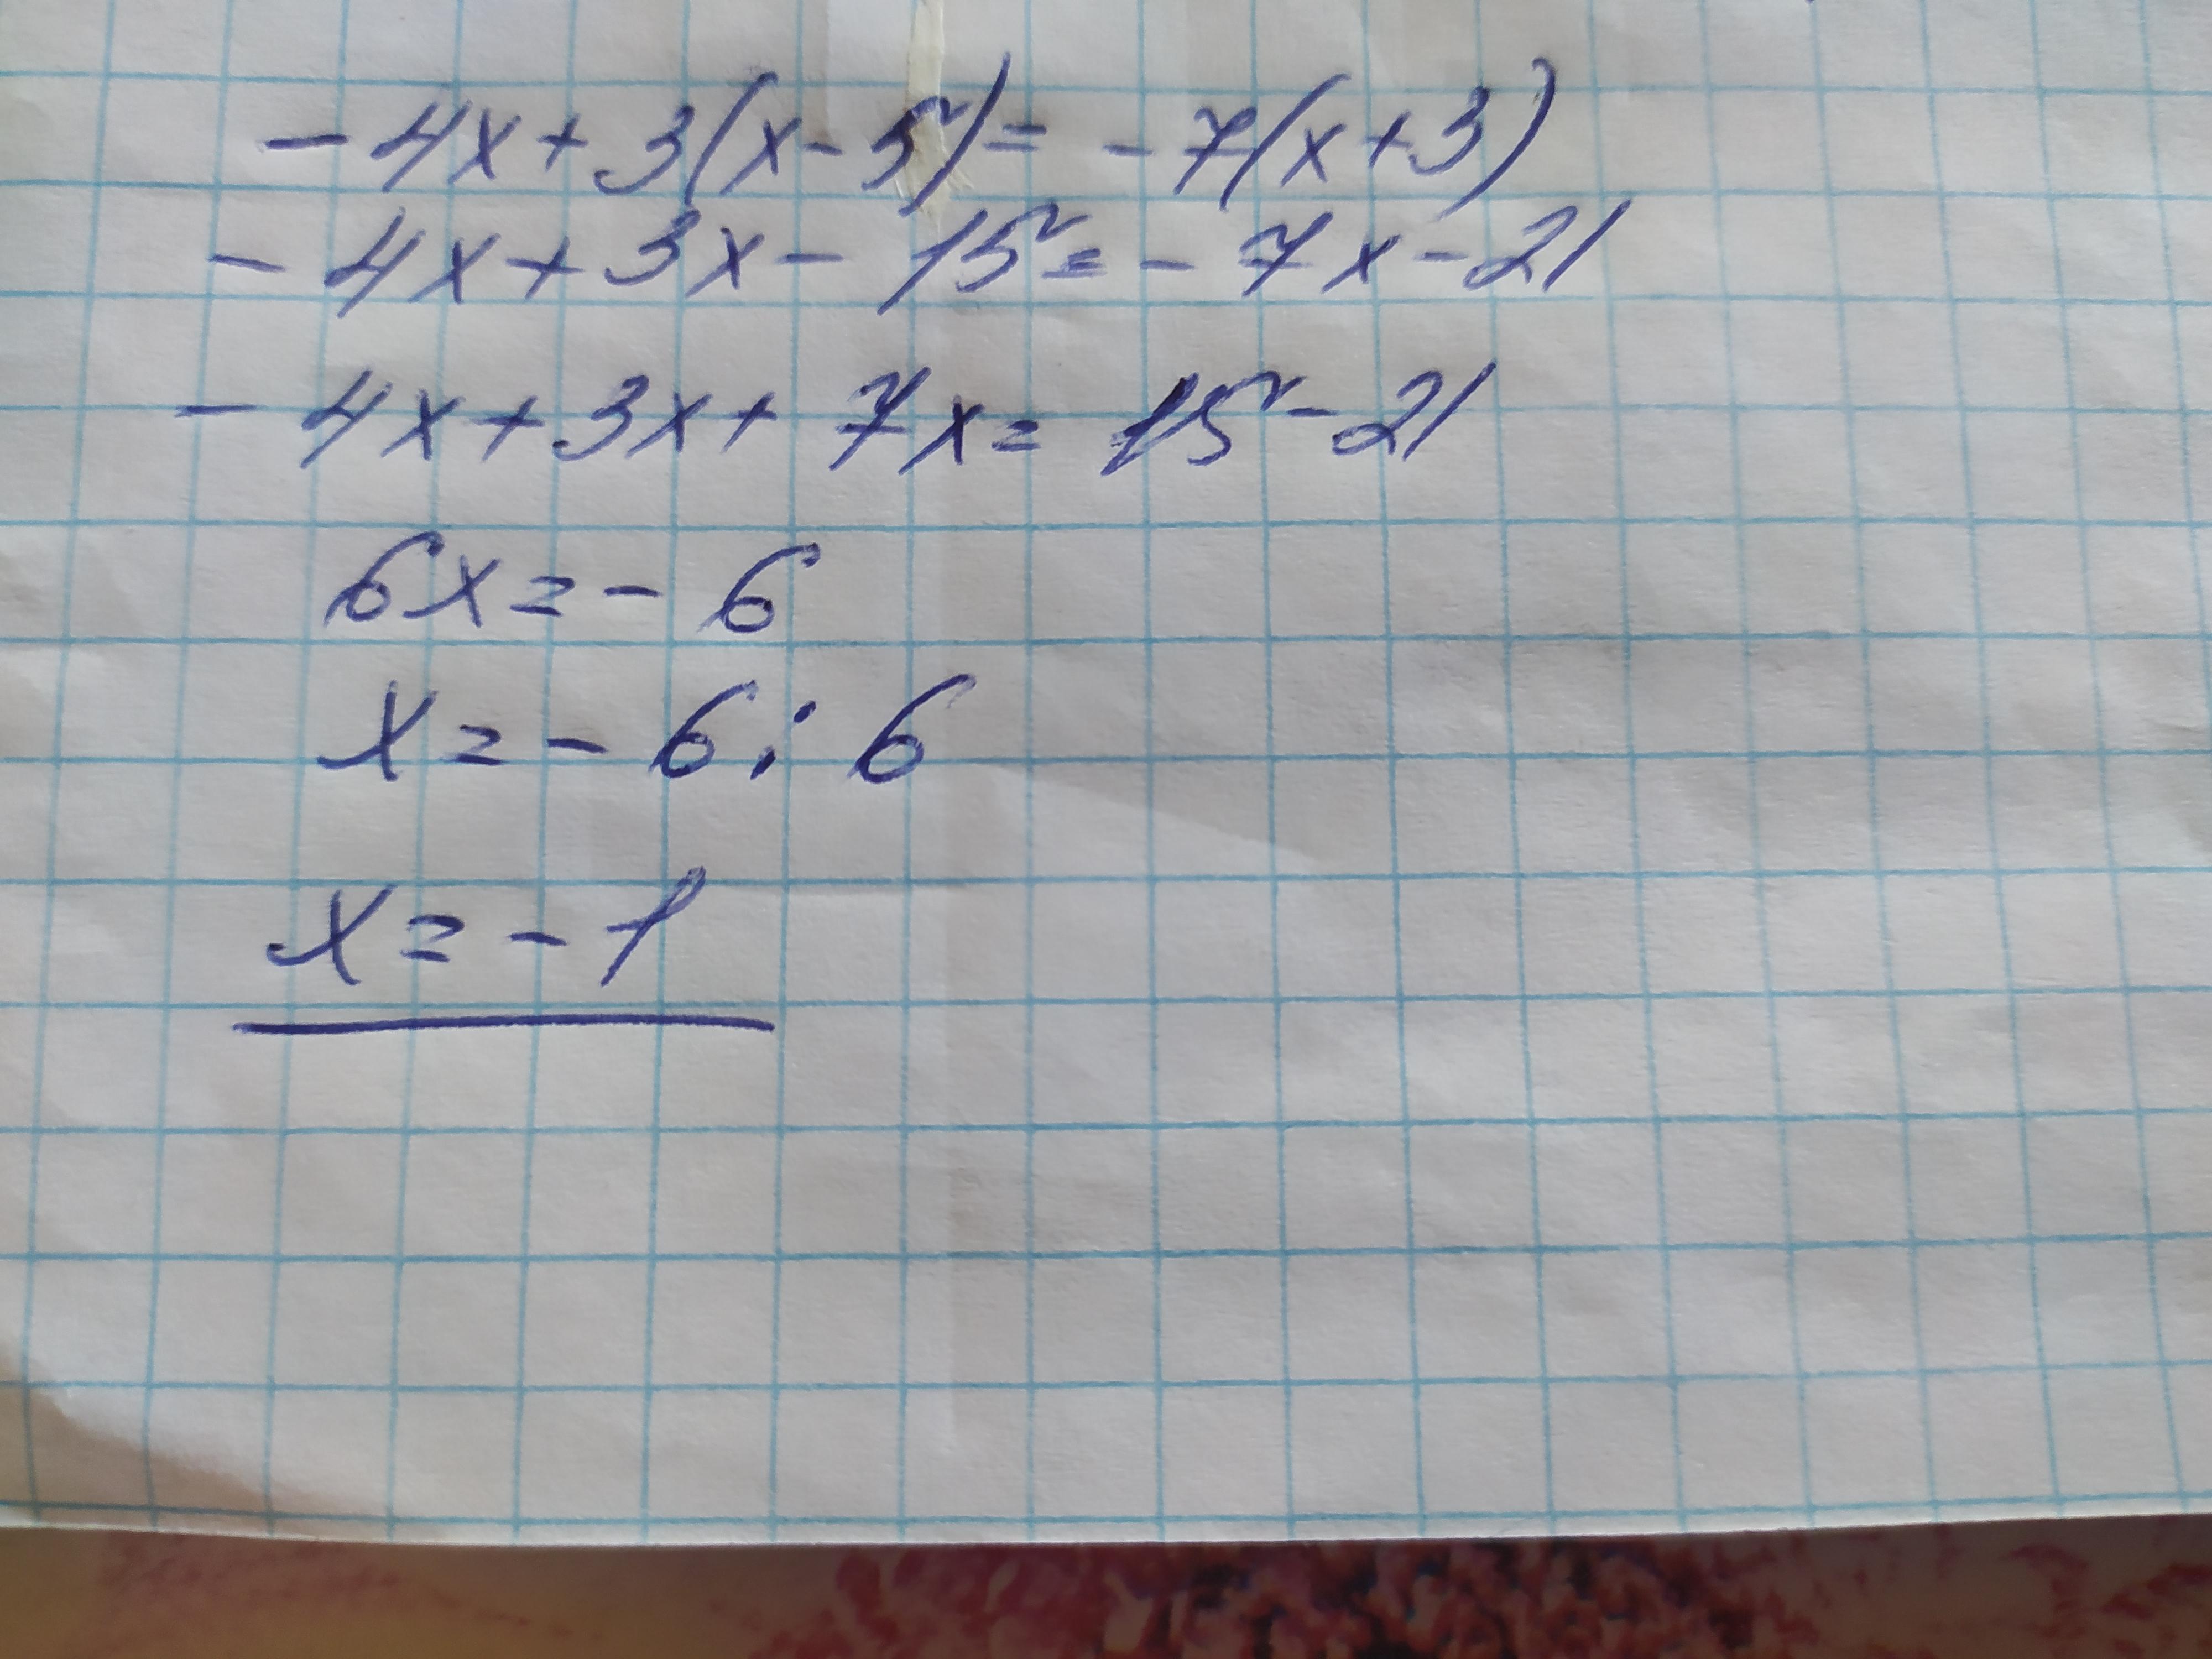 -4x+3(x-5)=-7(x+3)
-4x+3x-15=-7x-21
-4x+3x+7x=15-21
6x=-6
x=-6:6
x=-1